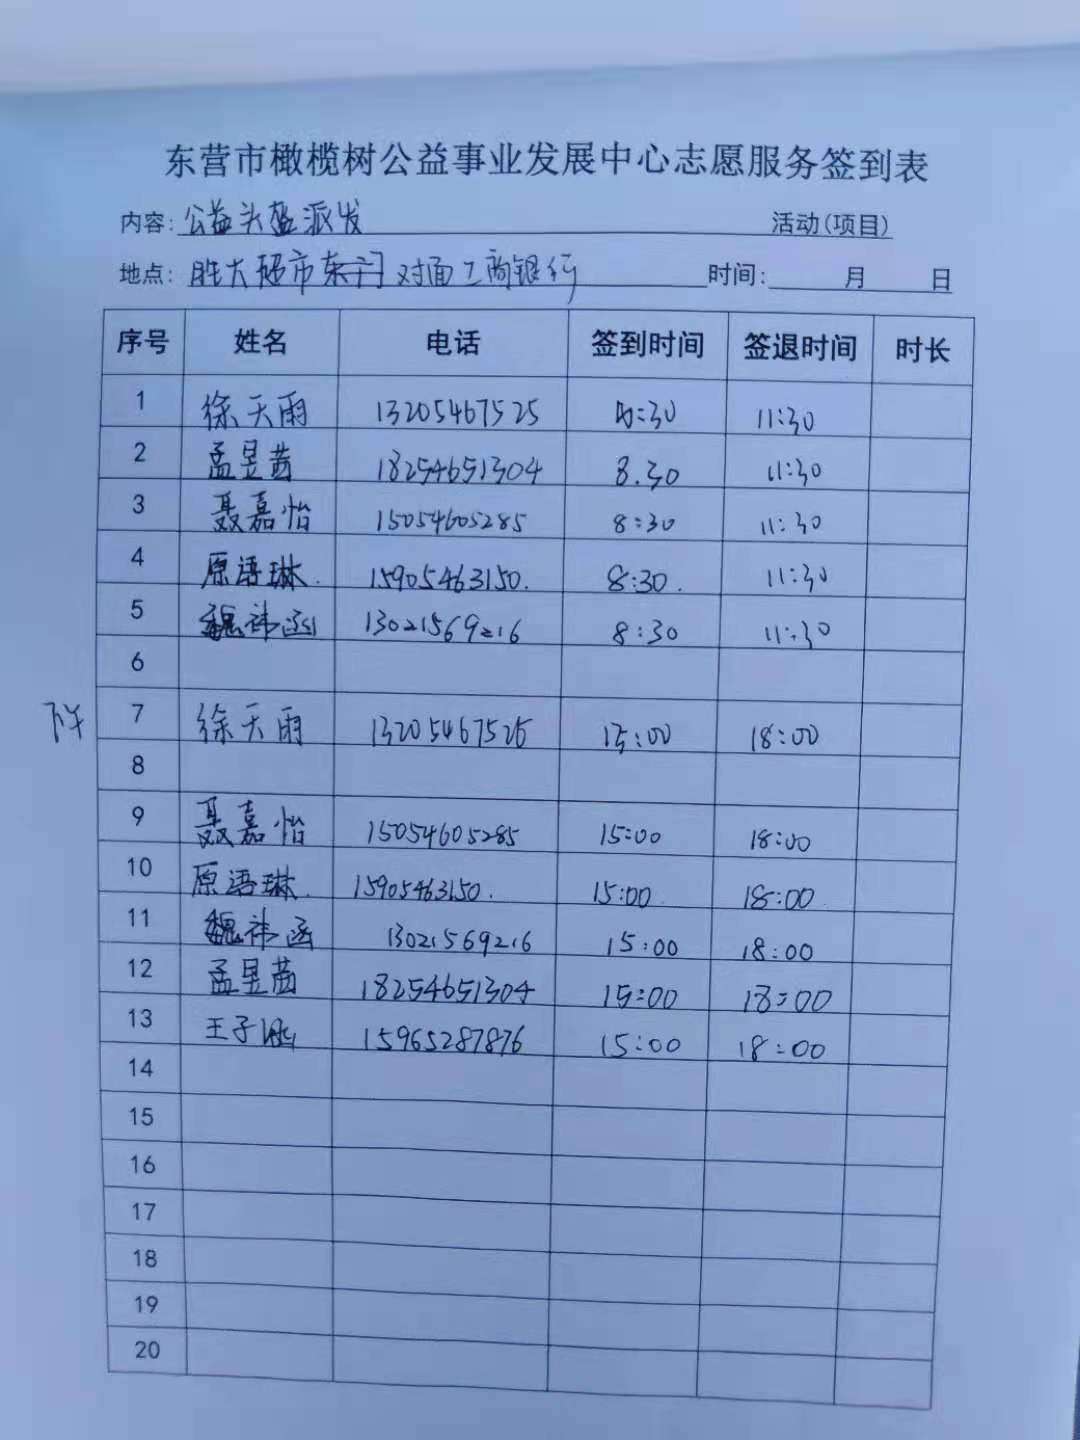 东营市橄榄树公益事业发展中心志愿服务签到表
内容: 公益头盔派发 活动(项目)
地点: 胜大超市东门对面工商银行 时间: 月 日
序号 姓名 电话 签到时间 签退时间 时长
1 徐天雨 13205467525 :30 11:30
2 孟昱茜 18254651304 8.30 11:30
3 聂嘉怡 15054605285 8:30 11:30
4 原语琳. 15905463150. 8:30. 11:30
5 魏祎函 13021569216 8:30 11:30
6
下午
7 徐天雨 13205467525 15:00 18:00
8
9 聂嘉怡 15054605285 15:00 18:00
10 原语琳. 15905463150. 15:00 18:00
11 魏祎函 13021569216 15:00 18:00
12 孟昱茜 18254651304 15:00 18:00
13 王子涵 15965287876 15:00 18:00
14
15
16
17
18
19
20